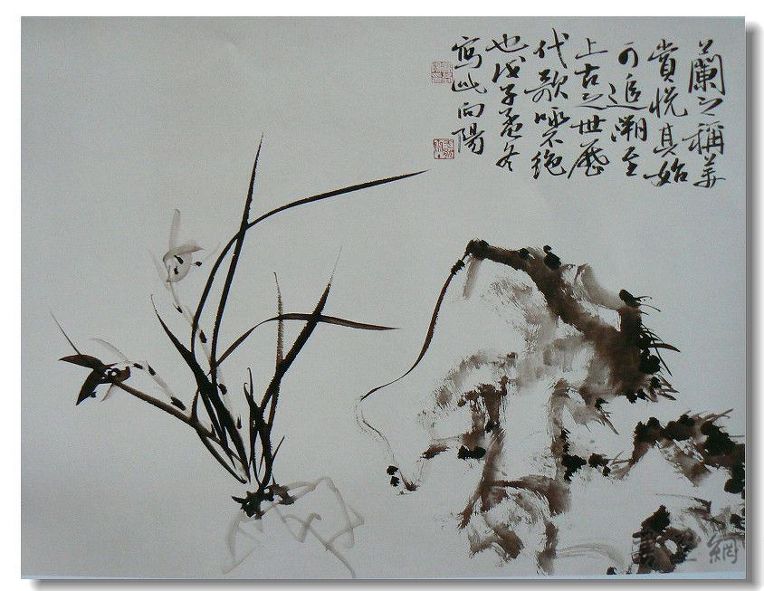 蘭之稱美
賞悦其始
可追溯至
上古之世歷
代歌咏不絶
也戊子孟冬
寫此向陽
網